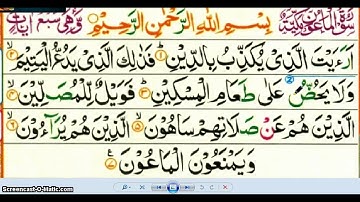 سُوْرَةُ الْمَاعُوْنِ مَكِّيَّةٌ بِسْمِ اللّٰهِ الرَّحْمٰنِ الرَّحِيْمِ وَهِيَ سَبْعُ اٰيَاتٍ
اَرَءَيْتَ الَّذِيْ يُكَذِّبُ بِالدِّيْنِ ۝١ فَذٰلِكَ الَّذِيْ يَدُعُّ الْيَتِيْمَ ۝٢
وَلَا يَحُضُّ عَلٰى طَعَامِ الْمِسْكِيْنِ ۝٣ فَوَيْلٌ لِّلْمُصَلِّيْنَ ۝٤
الَّذِيْنَ هُمْ عَنْ صَلَاتِهِمْ سَاهُوْنَ ۝٥ الَّذِيْنَ هُمْ يُرَآءُوْنَ ۝٦
وَيَمْنَعُوْنَ الْمَاعُوْنَ ۝٧
Screencast-O-Matic.com